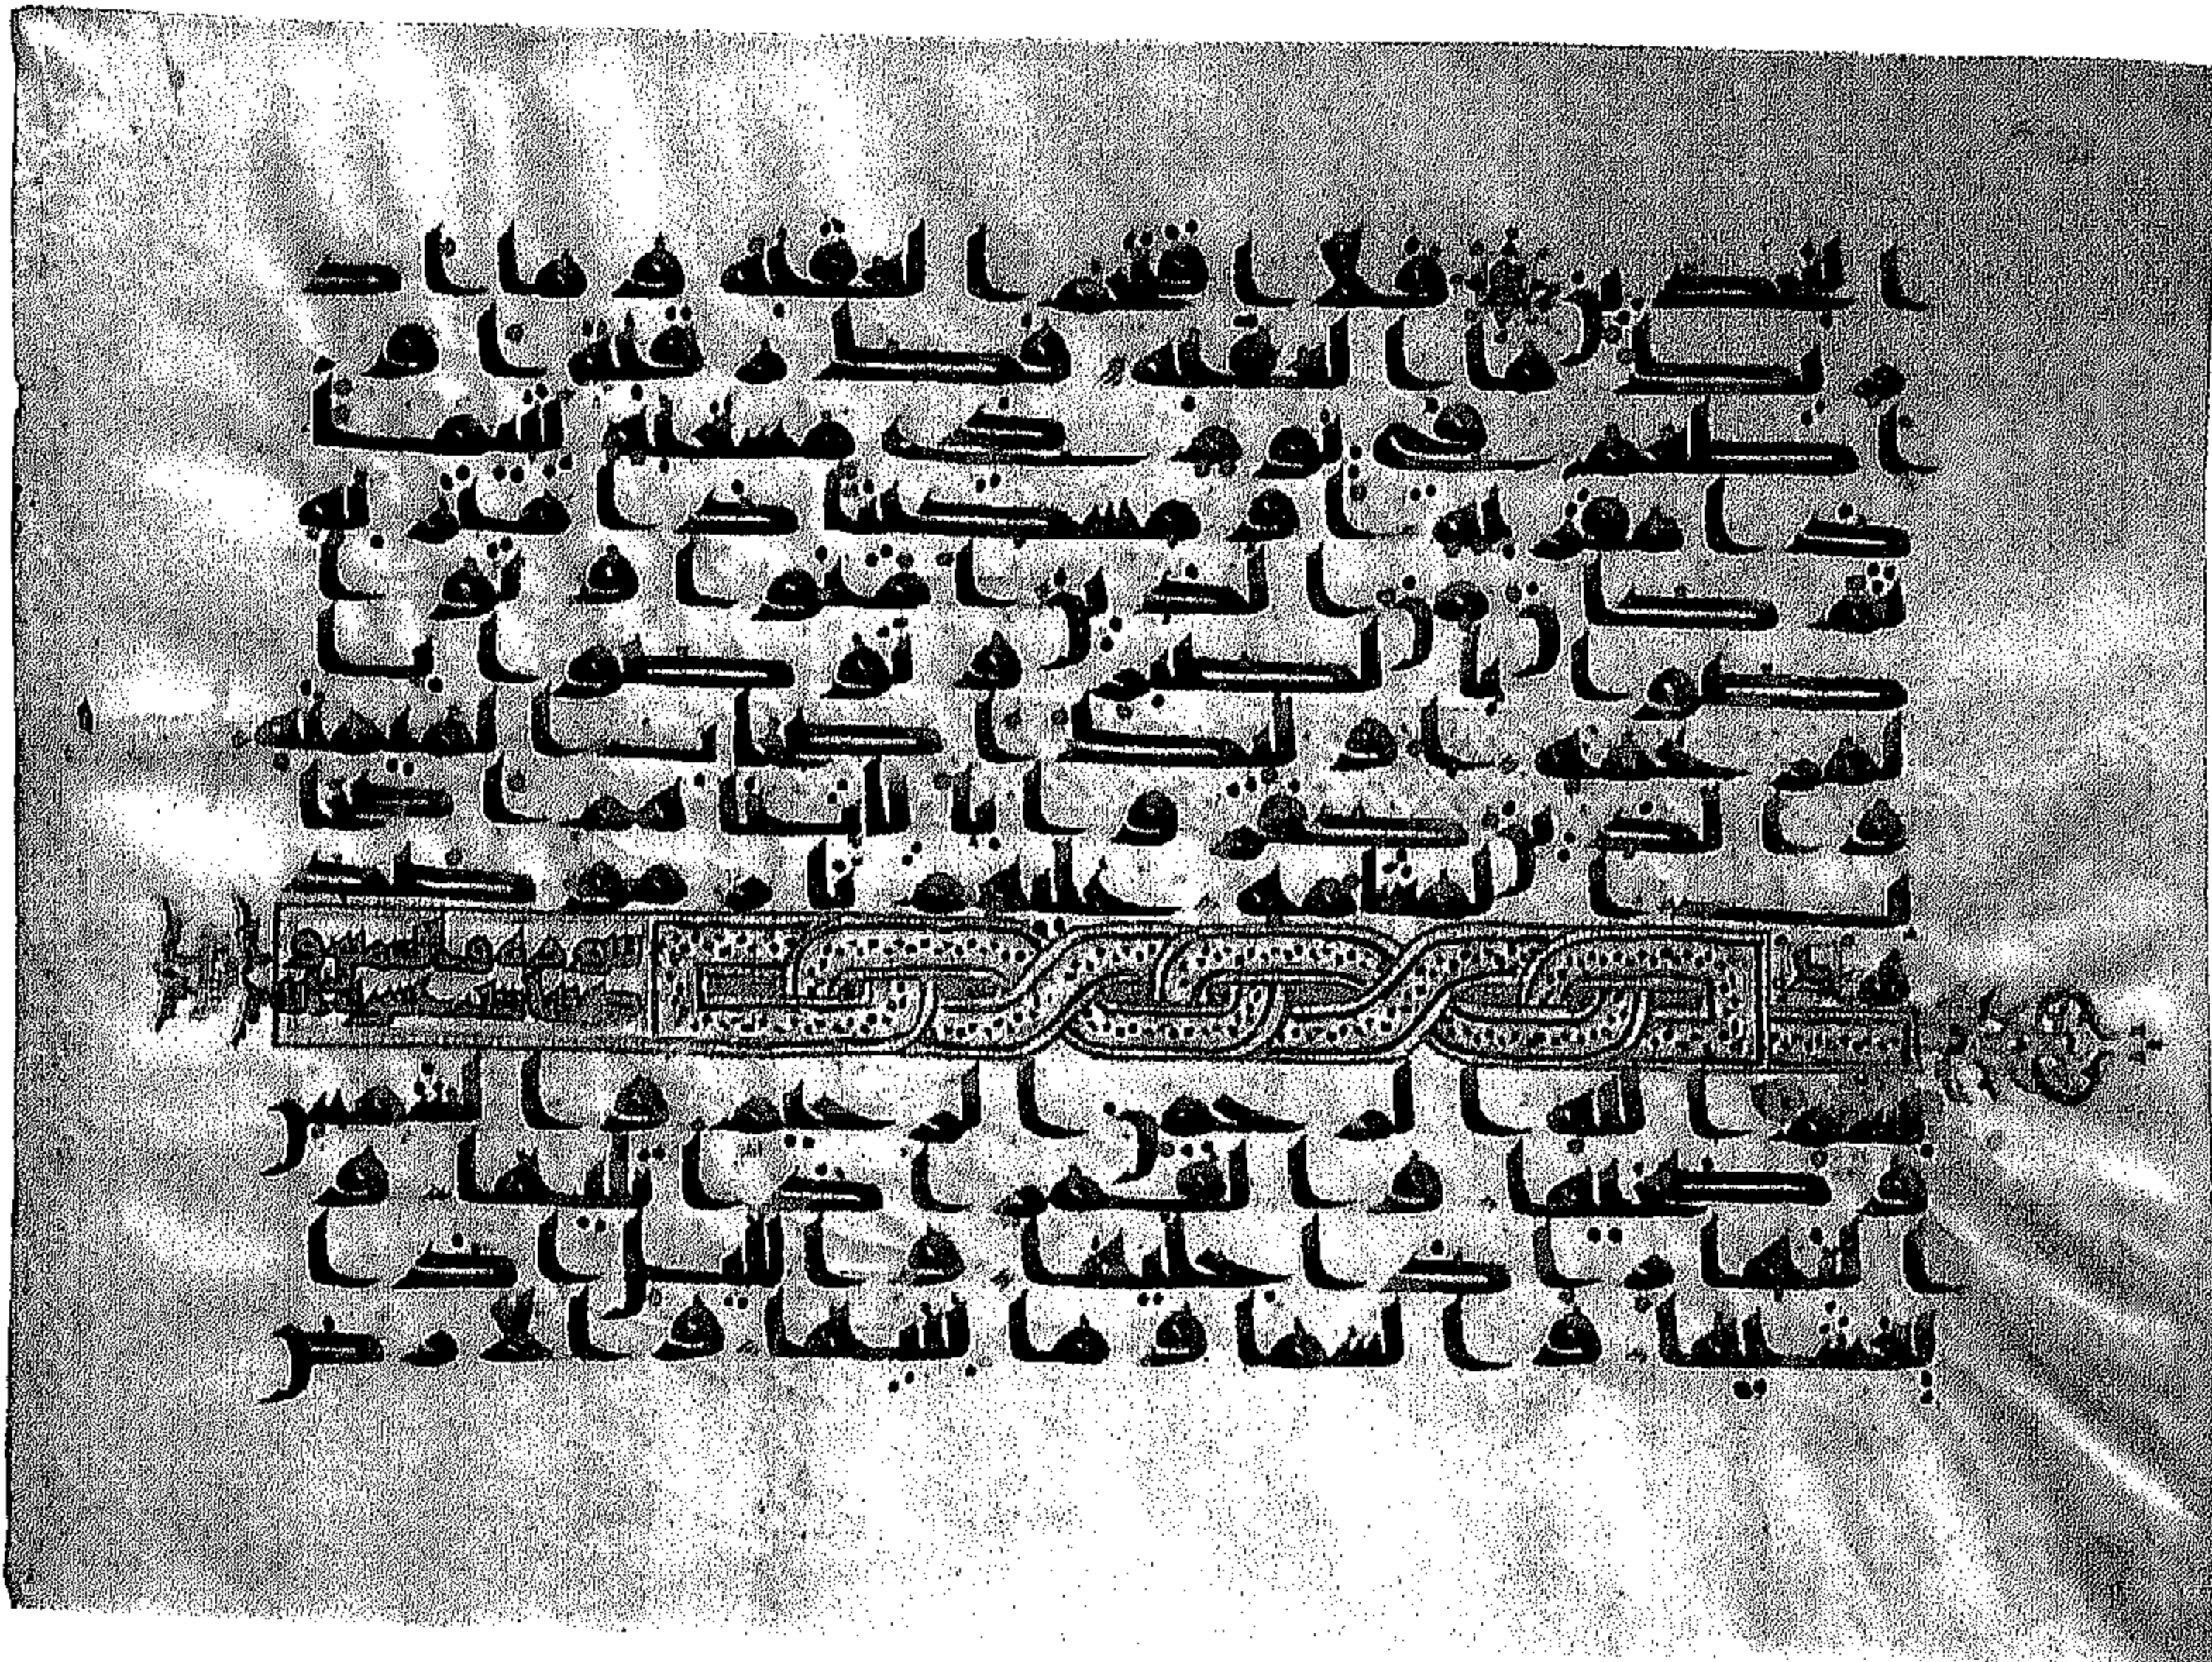 ا لنجدين فلا ا قتحم ا لعقبة و ما ا د
ر يك ما ا لعقبة فك ر قبة ا و
ا طعم في يوم ذي مسغبة يتيما
ذ ا مقر بة ا و مسكينا ذ ا متر بة
ثم كا ن من ا لذين ا منوا و تو ا
صوا با لصبر و تو ا صوا با
لمر حمة ا و لئك ا صحا ب ا لميمنة
و ا لذين كفر و ا با يا تنا هم ا صحا
ب ا لمشئمة عليهم نا ر مو صد
ة
سورة و ا لشمس و
بسم ا لله ا لر حمن ا لر حيم و ا لشمس
و ضحيها و ا لقمر ا ذ ا تليها و
ا لنها ر ا ذ ا جليها و ا ليل ا ذ ا
يغشيها و ا لسما و ما بنيها و ا لا ر ض